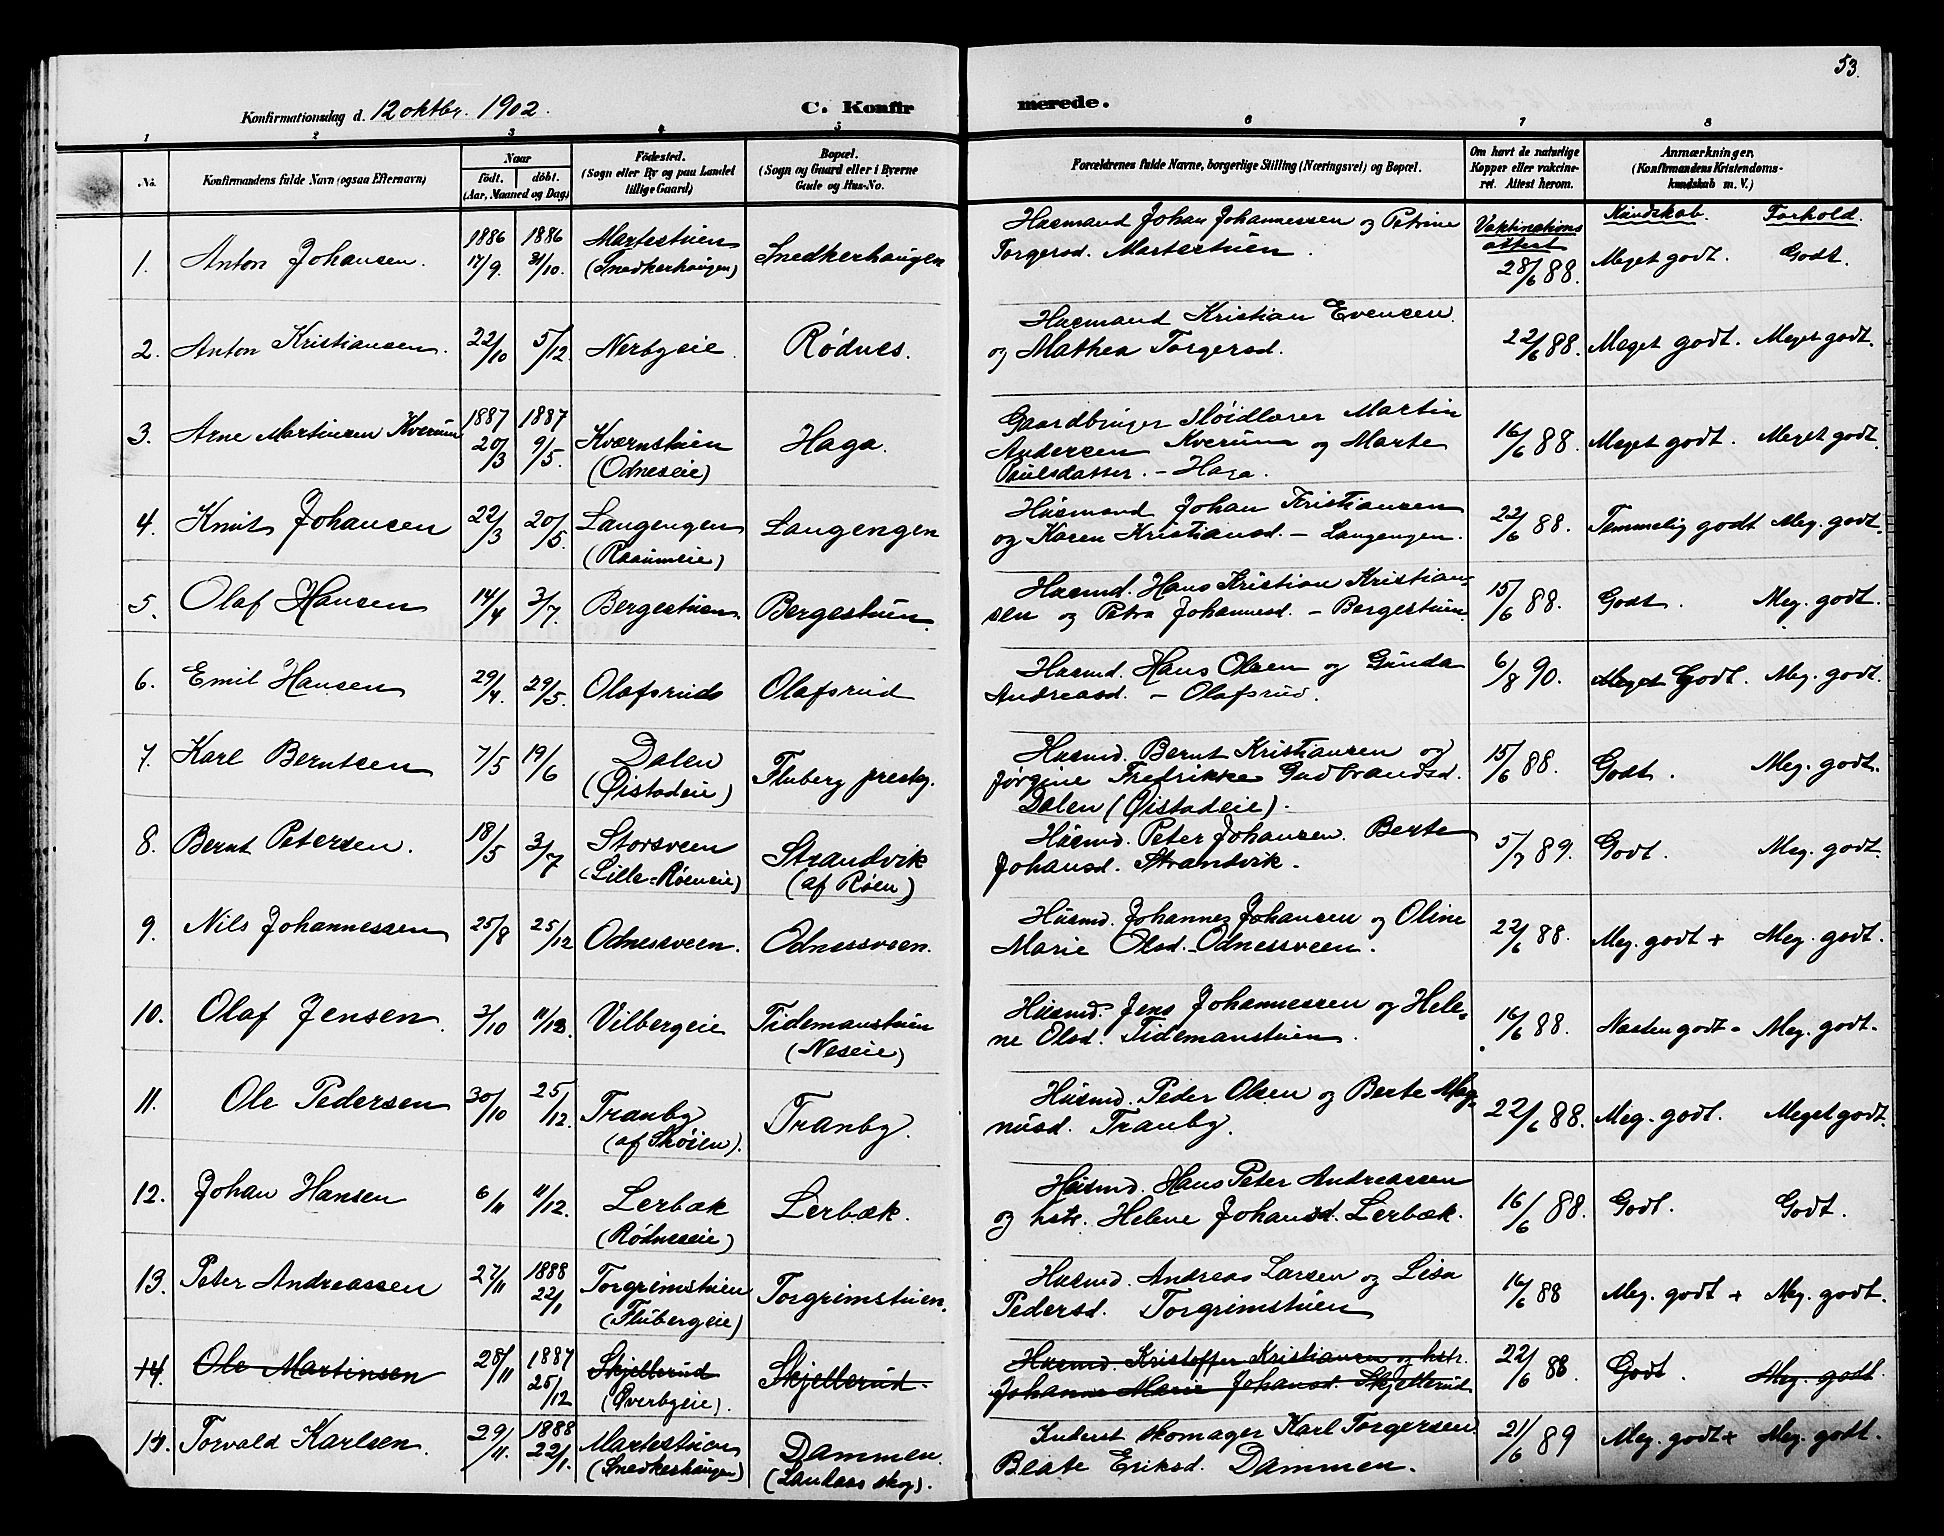 53.
Konfirmationsdag d. 12 oktbr. 1902.
C. Konfirmerede.
1 2 3 4 5 6 7 8
No.
Konfirmandens fulde Navn (ogsaa Efternavn)
Naar
födt. döbt.
(Aar, Maaned og Dag)
Födested.
(Sogn eller By og paa Landet
tillige Gaard)
Bopæl.
(Sogn og Gaard eller i Byerne
Gade og Hus-No.
Forældrenes fulde Navne, borgerlige Stilling (Næringsvei) og Bopæl.
Om havt de naturlige
Kopper eller vakcine-
ret. Attest herom.
Anmærkninger,
(Konfirmandens Kristendoms-
kundskab m. V.)
Vaktinations
attest
Kundskab. Forhold.
1. Anton Johansen.
1886 17/9.
1886 31/10.
Martestuen
(Snedkerhaugen)
Snedkerhaugen
Husmand Johan Johannessen og Petrine
Torgersd. Martestuen.
28/6 88.
Meget godt. Godt.
2. Anton Kristiansen.
22/10
5/12
Nerbyeie.
Rødnes.
Husmand Kristian Evensen.
og Mathea Torgersd.
22/6 88.
Meget godt. Meget godt.
3. Arne Martinsen Kverum
1887 20/3
1887 9/5.
Kværnstuen
(Odneseie)
Haga.
Gaardbruger Sløidlærer Martin
Andersen Kverum og Marte
Paulsdatter. - Haga.
16/6 88.
Meget godt. Meget godt.
4. Knut Johansen
22/3
20/5.
Langengen
(Raaumeie)
Langengen
Husmand Johan Kristiansen
og Karen Kristiansd. - Langengen.
22/6 88.
Temmelig godt Meg. godt.
5. Olaf Hansen
14/4
3/7.
Bergestuen.
Bergestuen.
Husmd. Hans Kristian Kristian-
sen og Petra Johannesd. - Bergestuen.
15/6 88.
Godt. Meg. godt.
6. Emil Hansen
29/4.
29/5.
Olafsruds
Olafsrud
Husmd. Hans Olsen og Gunda
Andreasd. - Olafsrud.
6/8 90.
Meget Godt. Meg. godt.
7. Karl Berntsen
7/5
19/6
Dalen
(Øistadeie)
Fluberg prestg.
Husmd. Bernt Kristiansen og
Jørgine Fredrikke Gudbrandsd.
Dalen (Øistadeie).
15/6 88.
Godt. Meg. godt.
8. Bernt Petersen.
18/5
3/7
Storsveen
(Lille-Røeneie)
Strandvik
(af Røen)
Husmd. Peter Johansen. Berte
Johansd. Strandvik.
5/7 89.
Godt. Meg. godt.
9. Nils Johannessen
25/8
25/12
Odnessveen.
Odnessveen.
Husmd. Johannes Johansen og Oline
Marie Olsd. - Odnessveen.
22/6 88.
Meg. godt + Meg. godt.
10. Olaf Jensen.
3/10
11/12.
Vilbergeie
Tidemanstuen
(Neseie)
Husmd. Jens Johannessen og Hele-
ne Olsd. Tidemanstuen.
16/6 88.
Næsten godt - Meg. godt.
11. Ole Pedersen
30/10
25/12.
Tranby
(af Skøien).
Tranby.
Husmd. Peder Olsen og Berte Mag-
nusd. Tranby.
22/6 88.
Meg. godt. Meget godt.
12. Johan Hansen
6/11
11/12.
Lerbæk
(Rødneseie)
Lerbæk.
Husmd. Hans Peter Andreassen
og hstr. Helene Johansd. Lerbæk.
16/6 88.
Godt. Godt.
13. Peter Andreassen
27/11
1888 22/1
Torgrimstuen
(Flubergeie)
Torgrimstuen.
Husmd. Andreas Larsen og Lisa
Pedersd. Torgrimstuen
16/6 88
Meg. godt + Meg. godt.
14. Ole Martinsen
28/11
1887 25/12
Skjellerud
(Överbyeie).
Skjellerud.
Husmd. Kristoffer Kristiansen og hstr.
Johanne Marie Johansd. Skjellerud
22/6 88
Godt. Meg. godt.
14. Torvald Karlsen.
29/11.
1888 22/1.
Martestuen
(Snedkerhaugen)
Dammen.
(Landaas skog).
Inderst skomager Karl Torgersen
Beate Eriksd. Dammen.
21/6 89
Meg. godt + Meg. godt.